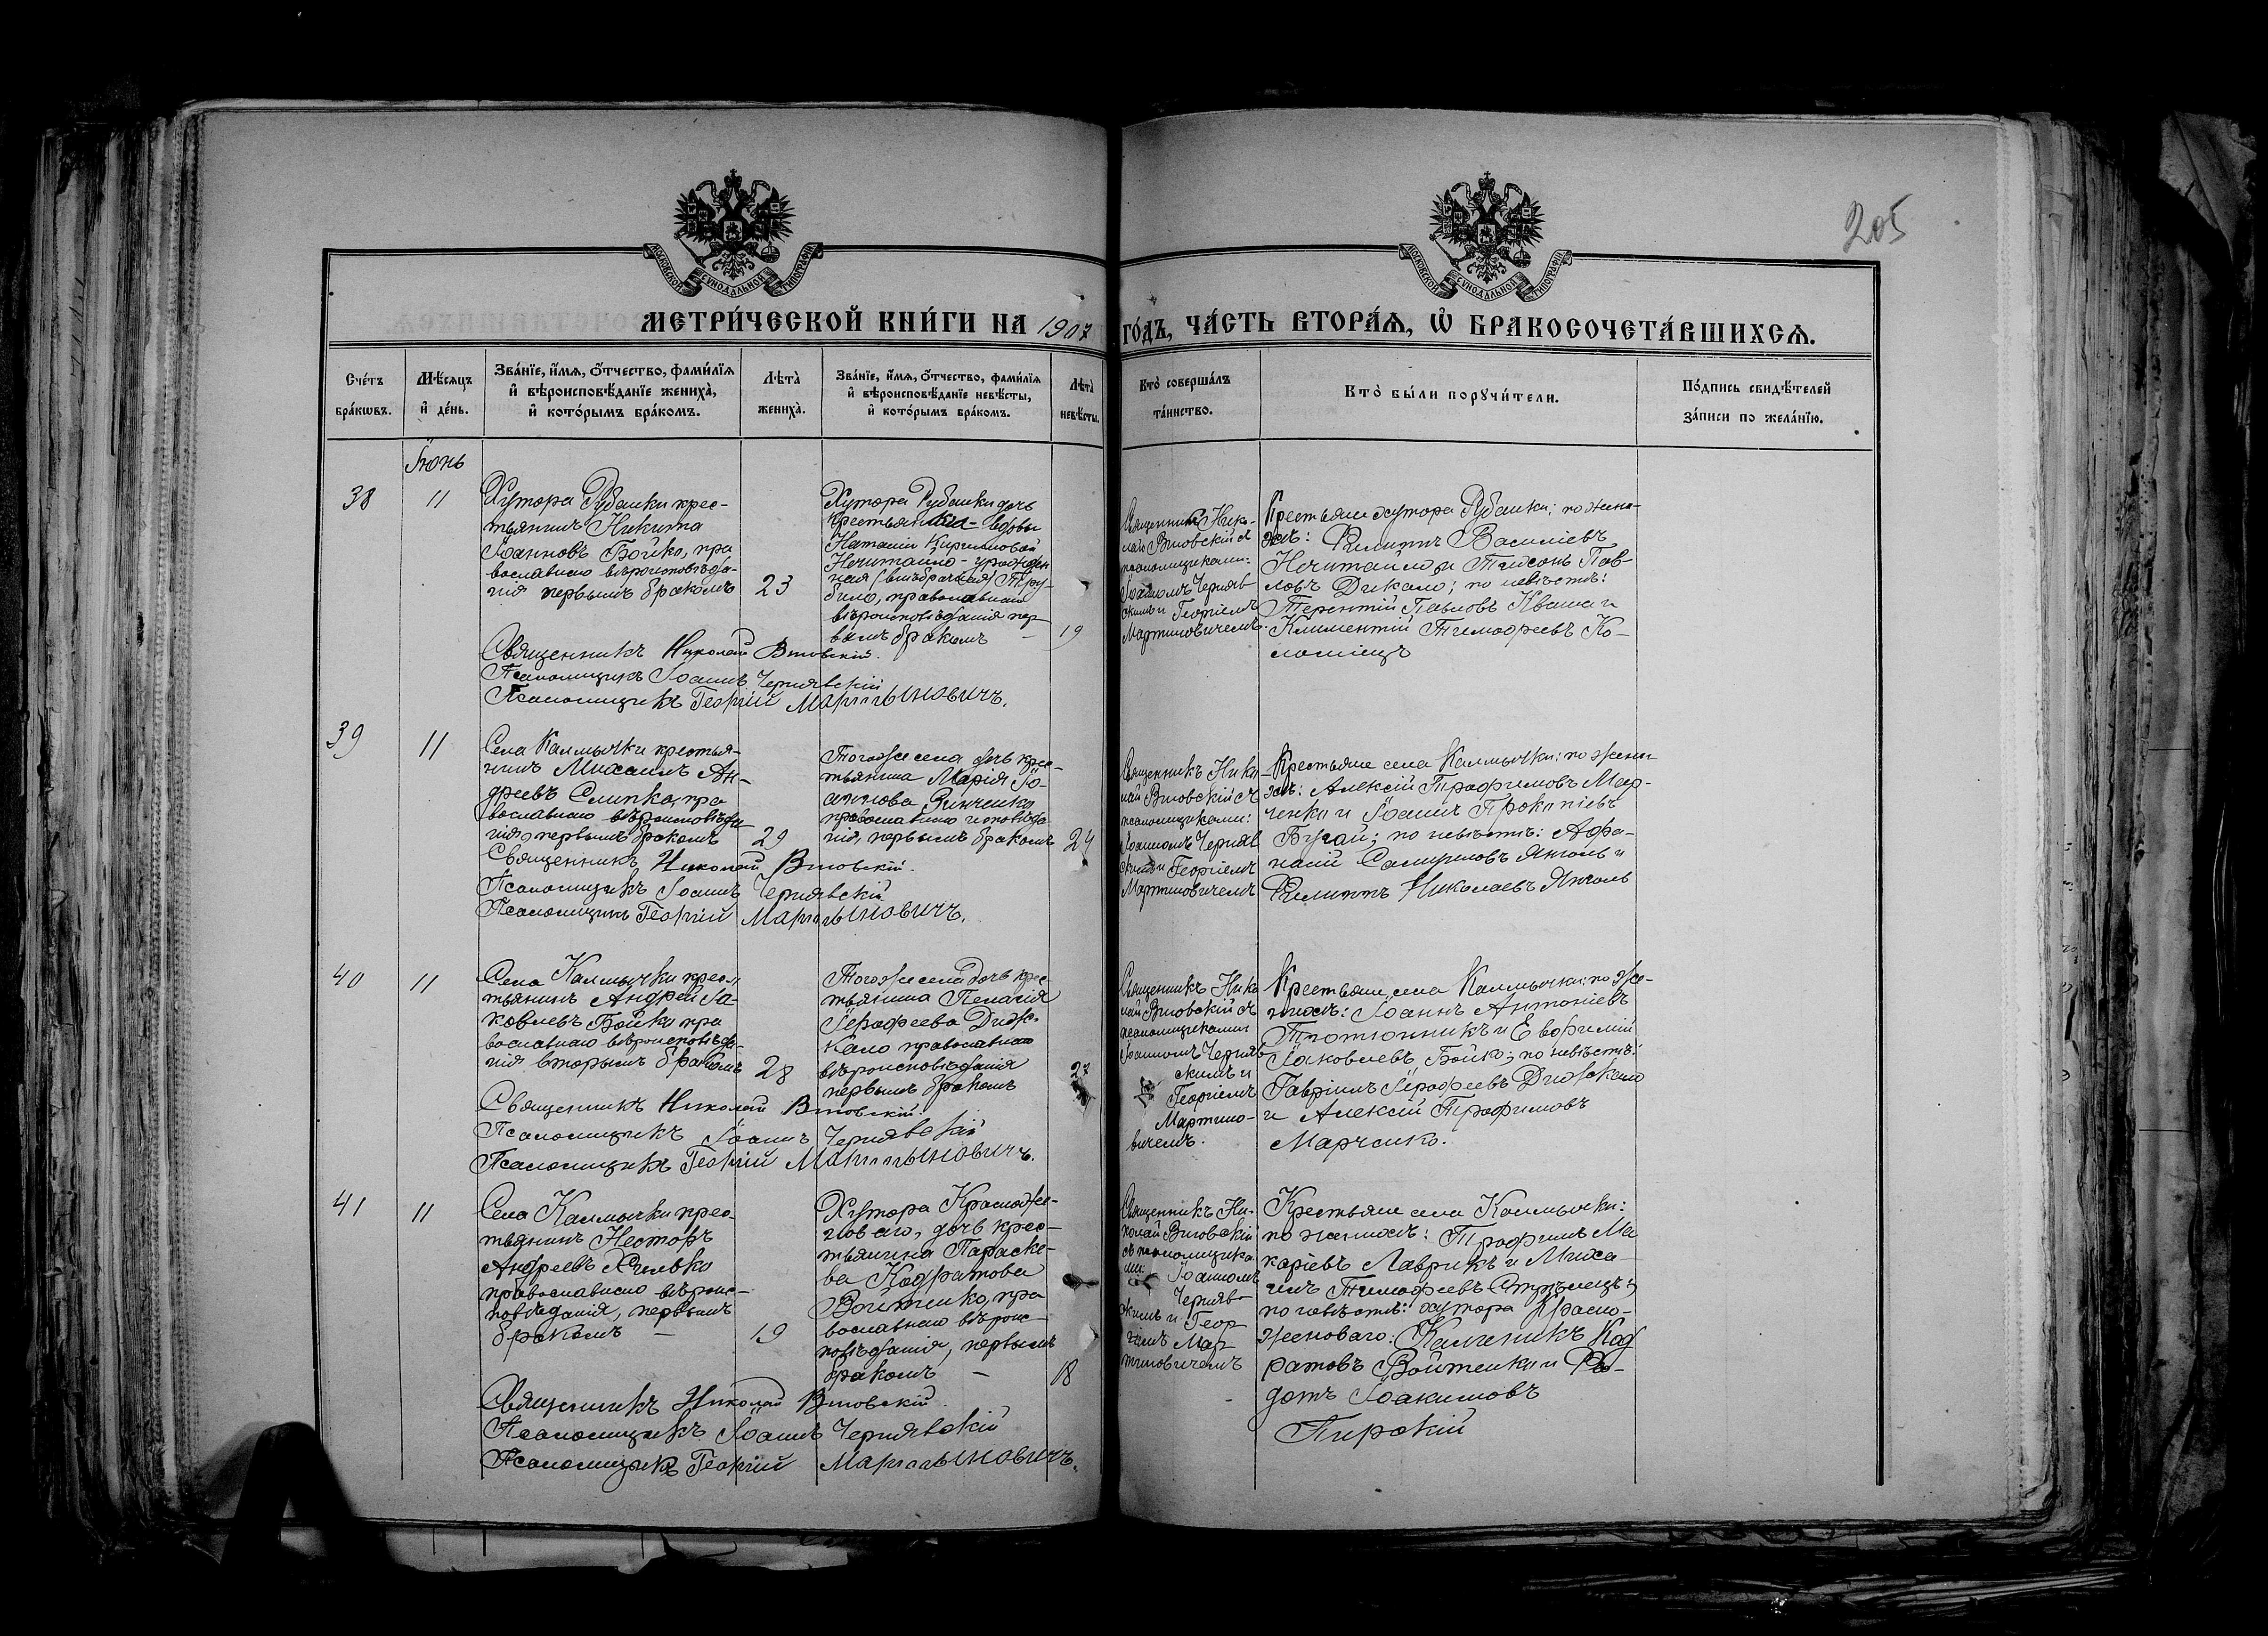 205
МОСКОВСКОЙ СУНОДАЛЬНОЙ ТИПОГРАФІИ
МОСКОВСКОЙ СУНОДАЛЬНОЙ ТИПОГРАФІИ
МЕТРИ́ЧЕСКОЙ КНИ́ГИ НА 1907 ГО́ДЪ, ЧА́СТЬ ВТОРА́Ѧ, Ѽ БРАКОСОЧЕТА́ВШИХСѦ.
Сче́тъ бра́кѡвъ.
Мѣ́сѧцъ и҆ де́нь.
Зва́нїе, и҆́мѧ, ѻ҆́тчество, фами́лїѧ и҆ вѣроисповѣ́данїе жениха̀, и҆ кото́рымъ бра́комъ.
Лѣ́та̀ жениха̀.
Зва́нїе, и҆́мѧ, ѻ҆́тчество, фами́лїѧ и҆ вѣроисповѣ́данїе невѣ́сты, и҆ кото́рымъ бра́комъ.
Лѣ́та̀ невѣ́сты.
Кто̀ соверша́лъ та́инство.
Кто̀ бы́ли порꙋчи́тели.
По́дпись свидѣ́телей за́писи по жела́нїю.
Іюнь
38
11
Хутора Рубанки крес-
тьянинъ Никита
Іоанновъ Бойко, пра
вославнаго вѣроисповѣда-
нія первымъ бракомъ
23
Хутора Рубанки дочь
крестьянки - вдовы
Наталіи Кирилловой
Нечитайло - урожден
ная (внѣбрачная) Тру-
било, православнаго
вѣроисповѣданія пер
вымъ бракомъ —
19
Священникъ Нико-
лай Витовскій съ
псаломщиками:
Іоанномъ Черняв
скимъ и Георгіемъ
Мартиновичемъ.
Крестьяне хутора Рубанки: по жени-
хѣ: Филиппъ Василіевъ
Нечитайло и Тимсонъ Пав-
ловъ Дикало; по невѣстѣ:
Терентій Павловъ Кваша и
Климентій Тимофеевъ Ко-
ломіецъ
Священникъ Николай Витовскій.
Псаломщикъ Іоаннъ Чернявскій
Псаломщикъ Георгій Мартыновичъ.
39
11
Села Калмычки крестья-
нинъ Михаилъ Ан-
дреевъ Слипко, пра
вославнаго вѣроисповѣда
нія, первымъ бракомъ
29
Тогоже села дочь крес-
тьянина Марія Іо-
аннова Зинченко
православнаго исповѣда
нія, первымъ бракомъ
24
Священникъ Нико
лай Витовскій съ
псаломщиками:
Іоанномъ Черняв
скимъ и Георгіемъ
Мартиновичемъ
Крестьяне села Калмычки: по жени-
хѣ: Алексій Трофимовъ Мар-
ченко и Іоаннъ Прокопіевъ
Бугай; по невѣстѣ: Афа-
насій Самуиловъ Янголь и
Филиппъ Николаевъ Янголь
Священникъ Николай Витовскій.
Псаломщикъ Іоаннъ Чернявскій
Псаломщикъ Георгій Мартыновичъ.
40
11
Села Калмычки крес-
тьянинъ Андрей Іа-
ковлевъ Бойко пра
вославнаго вѣроисповѣда-
нія вторымъ бракомъ
28
Тогоже села дочь крес-
тьянина Пелагія
Іерофеева Дидо-
кало православнаго
вѣроисповѣданія
первымъ бракомъ
27
Священникъ Нико
лай Витовскій съ
псаломщиками
Іоанномъ Черняв
скимъ и
Георгіемъ
Мартино-
вичемъ.
Крестьяне села Калмычки: по же-
нихѣ: Іоаннъ Антоніевъ
Тютюнникъ и Евфимій
Іаковлевъ Бойко; по невѣстѣ:
Гавріилъ Іерофеевъ
и Алексій Трофимовъ
Марченко.
Священникъ Николай Витовскій.
Псаломщикъ Іоаннъ Чернявскій
Псаломщикъ Георгій Мартыновичъ.
41
11
Села Калмычки крес-
тьянинъ Несторъ
Андреевъ Хилько
православнаго вѣроис-
повѣданія, первымъ
бракомъ —
19
Хутора Красноже-
новаго, дочь крес-
тьянина Параске-
ва Кодратова
Войтенко, пра
вославнаго вѣроис-
повѣданія, первымъ
бракомъ —
18
Священникъ Ни-
колай Витовскій
съ псаломщика
ми Іоанномъ
Черняв-
скимъ и Геор
гіемъ Мар
тиновичемъ
Крестьяне села Калмычки:
по женихѣ: Трофимъ Ма
каріевъ Лаврикъ и Миха-
илъ Тимофеевъ Стрѣлецъ;
по невѣстѣ: хутора Красно-
женоваго: Каленикъ Код
ратовъ Войтенко и Фе-
дотъ Іоакимовъ
Пирскій
Священникъ Николай Витовскій.
Псаломщикъ Іоаннъ Чернявскій
Псаломщикъ Георгій Мартыновичъ.